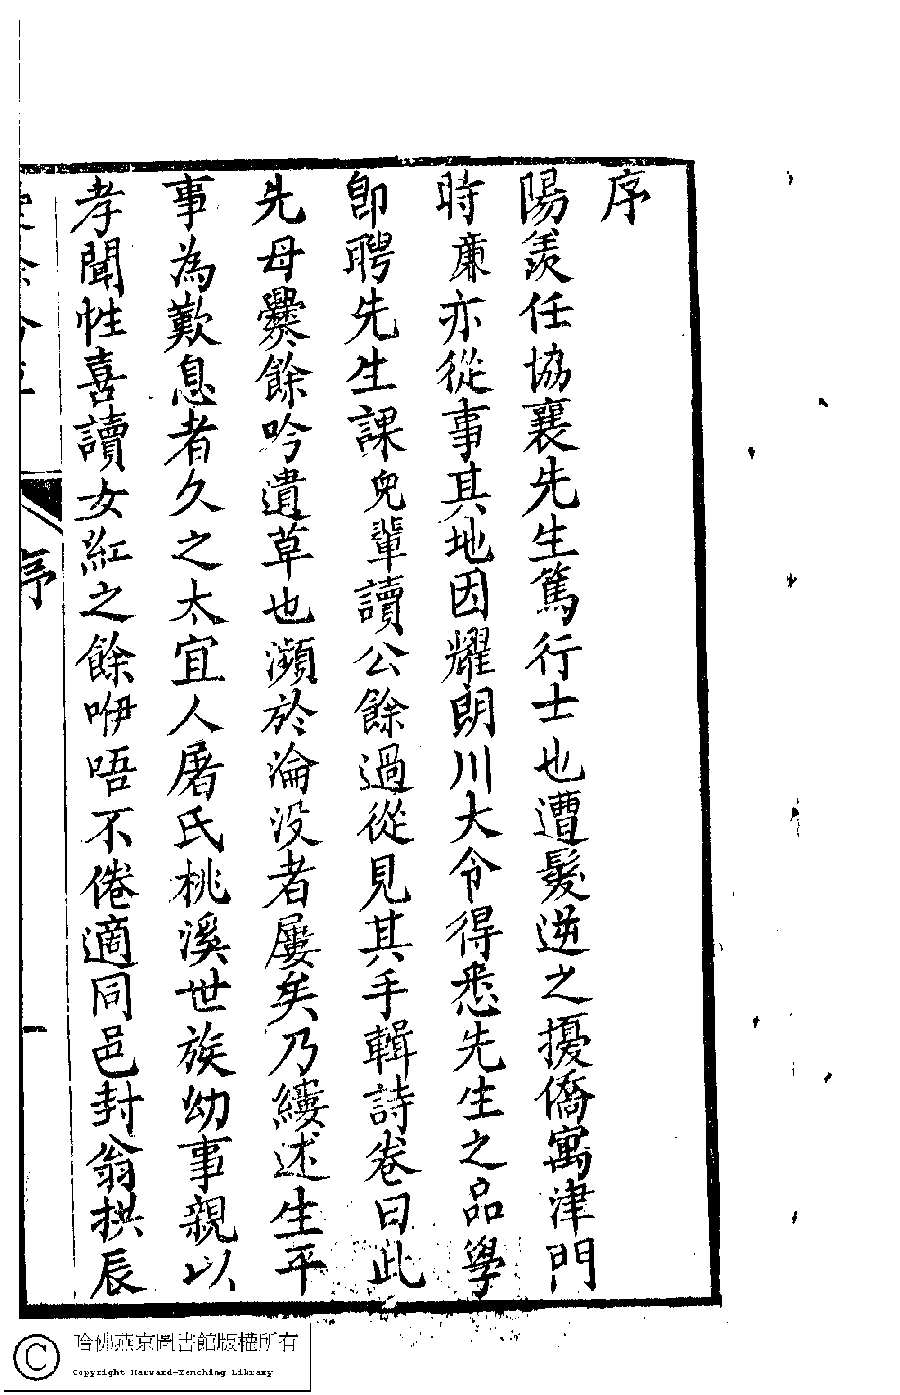 序
陽羨任協襄先生篤行士也遭髮逆之擾僑寓津門
時廉亦從事其地因耀朗川大令得悉先生之品學
即聘先生課兒輩讀公餘過從見其手輯詩卷曰此
先母爨餘吟遺草也瀕於淪没者屢矣乃縷述生平
事為歎息者久之太宜人屠氏桃溪世族幼事親以
孝聞性喜讀女紅之餘咿唔不倦適同邑封翁拱辰
序
一
哈佛燕京圖書館版權所有
Copyright Harvard-Yenching Library